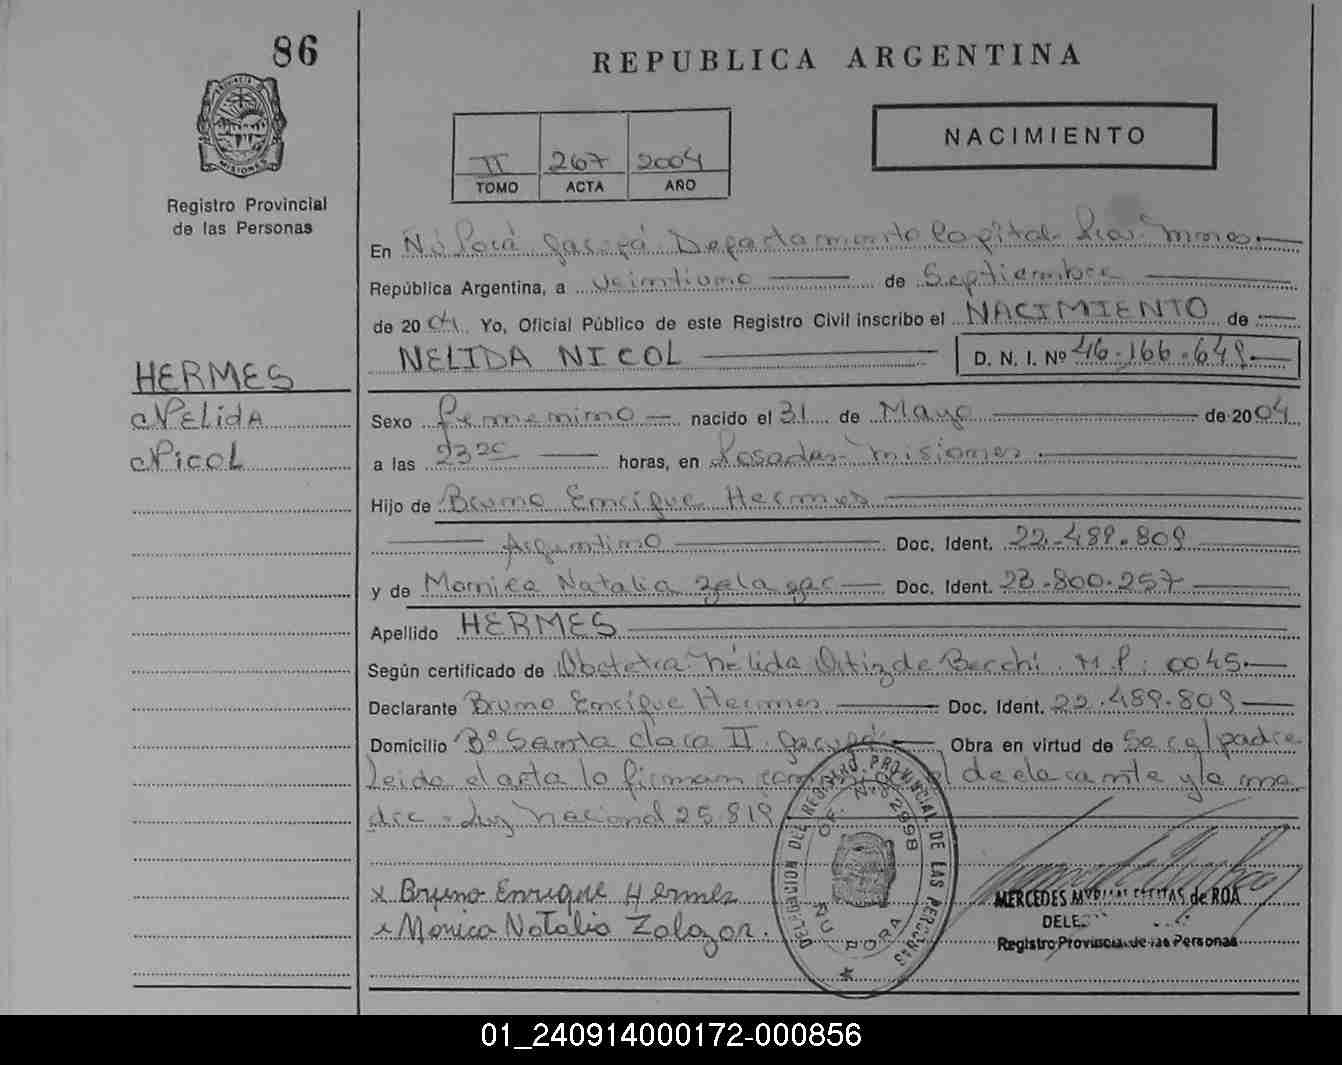 86
REPUBLICA ARGENTINA
PROVINCIA DE
MISIONES
Registro Provincial
de las Personas
II 267 2004
TOMO ACTA AÑO
NACIMIENTO
En Ñú Porá Garupá Departamento Capital Pcia. Mnes
República Argentina, a veintiuno de Septiembre
de 2004. Yo, Oficial Público de este Registro Civil inscribo el NACIMIENTO de
NELIDA NICOL D. N. I. Nº 46.166.649
HERMES
NELIDA
NICOL
Sexo femenino nacido el 31 de Mayo de 2004
a las 2320 horas, en Posadas Misiones
Hijo de Bruno Enrique Hermes
Argentino Doc. Ident. 22.489.809
y de Monica Natalia Zalazar Doc. Ident. 23.800.257
Apellido HERMES
Según certificado de Obstetra Nélida Ortiz de Becchi M.P. 0045
Declarante Bruno Enrique Hermes Doc. Ident. 22.489.809
Domicilio Bº Santa Clara II. Garupá Obra en virtud de Ser el padre
Leida el acta lo firman el declarante y la ma
dre. Ley Nacional 25.819
x Bruno Enrique Hermes
x Monica Natalia Zalazar.
DELEGACION DEL REGISTRO PROVINCIAL DE LAS PERSONAS
OF. Nº 2998
ÑU PORA
MERCEDES de ROA
Registro Provincial de las Personas
01_240914000172-000856